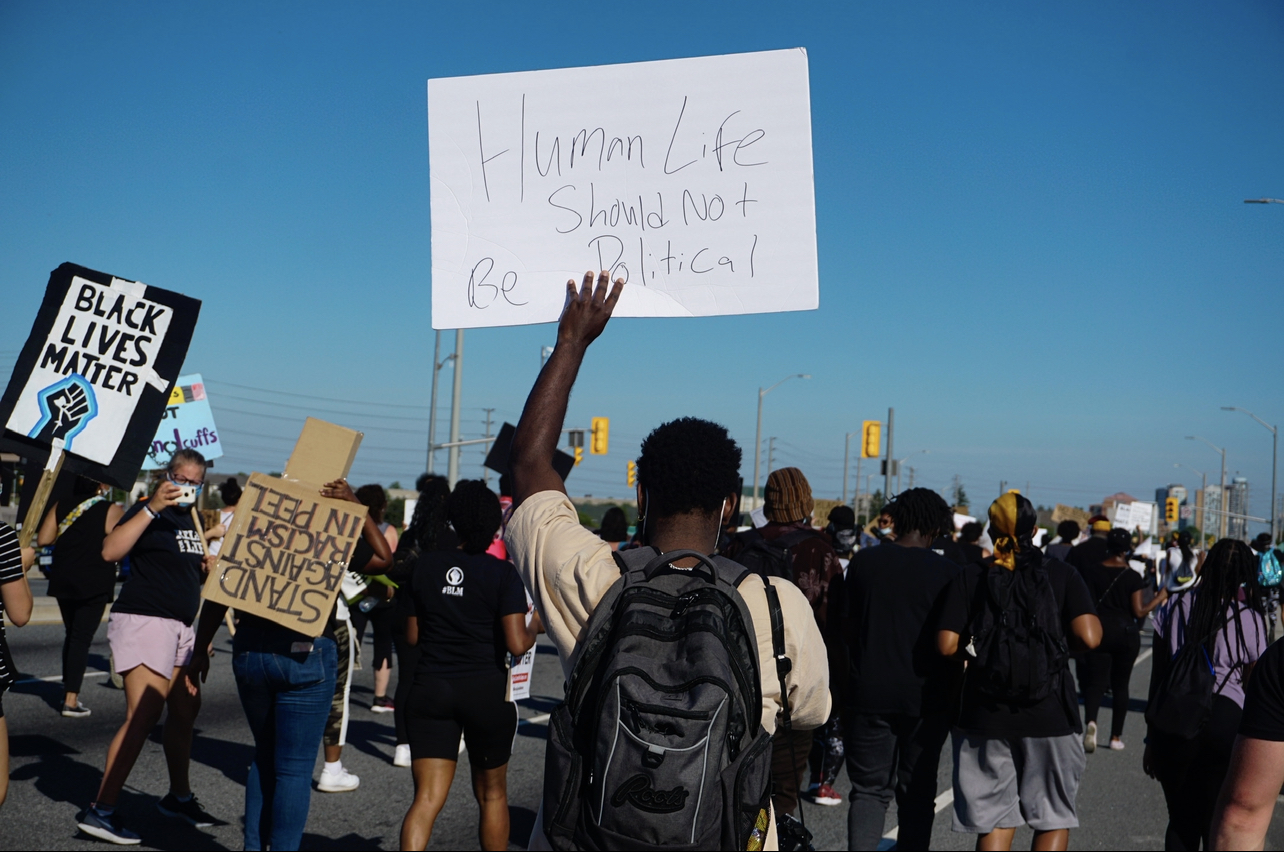 Human Life
Should Not
Be Political
BLACK
LIVES
MATTER
STAND
AGAINST
RACISM
IN PEEL
#BLM
Roots